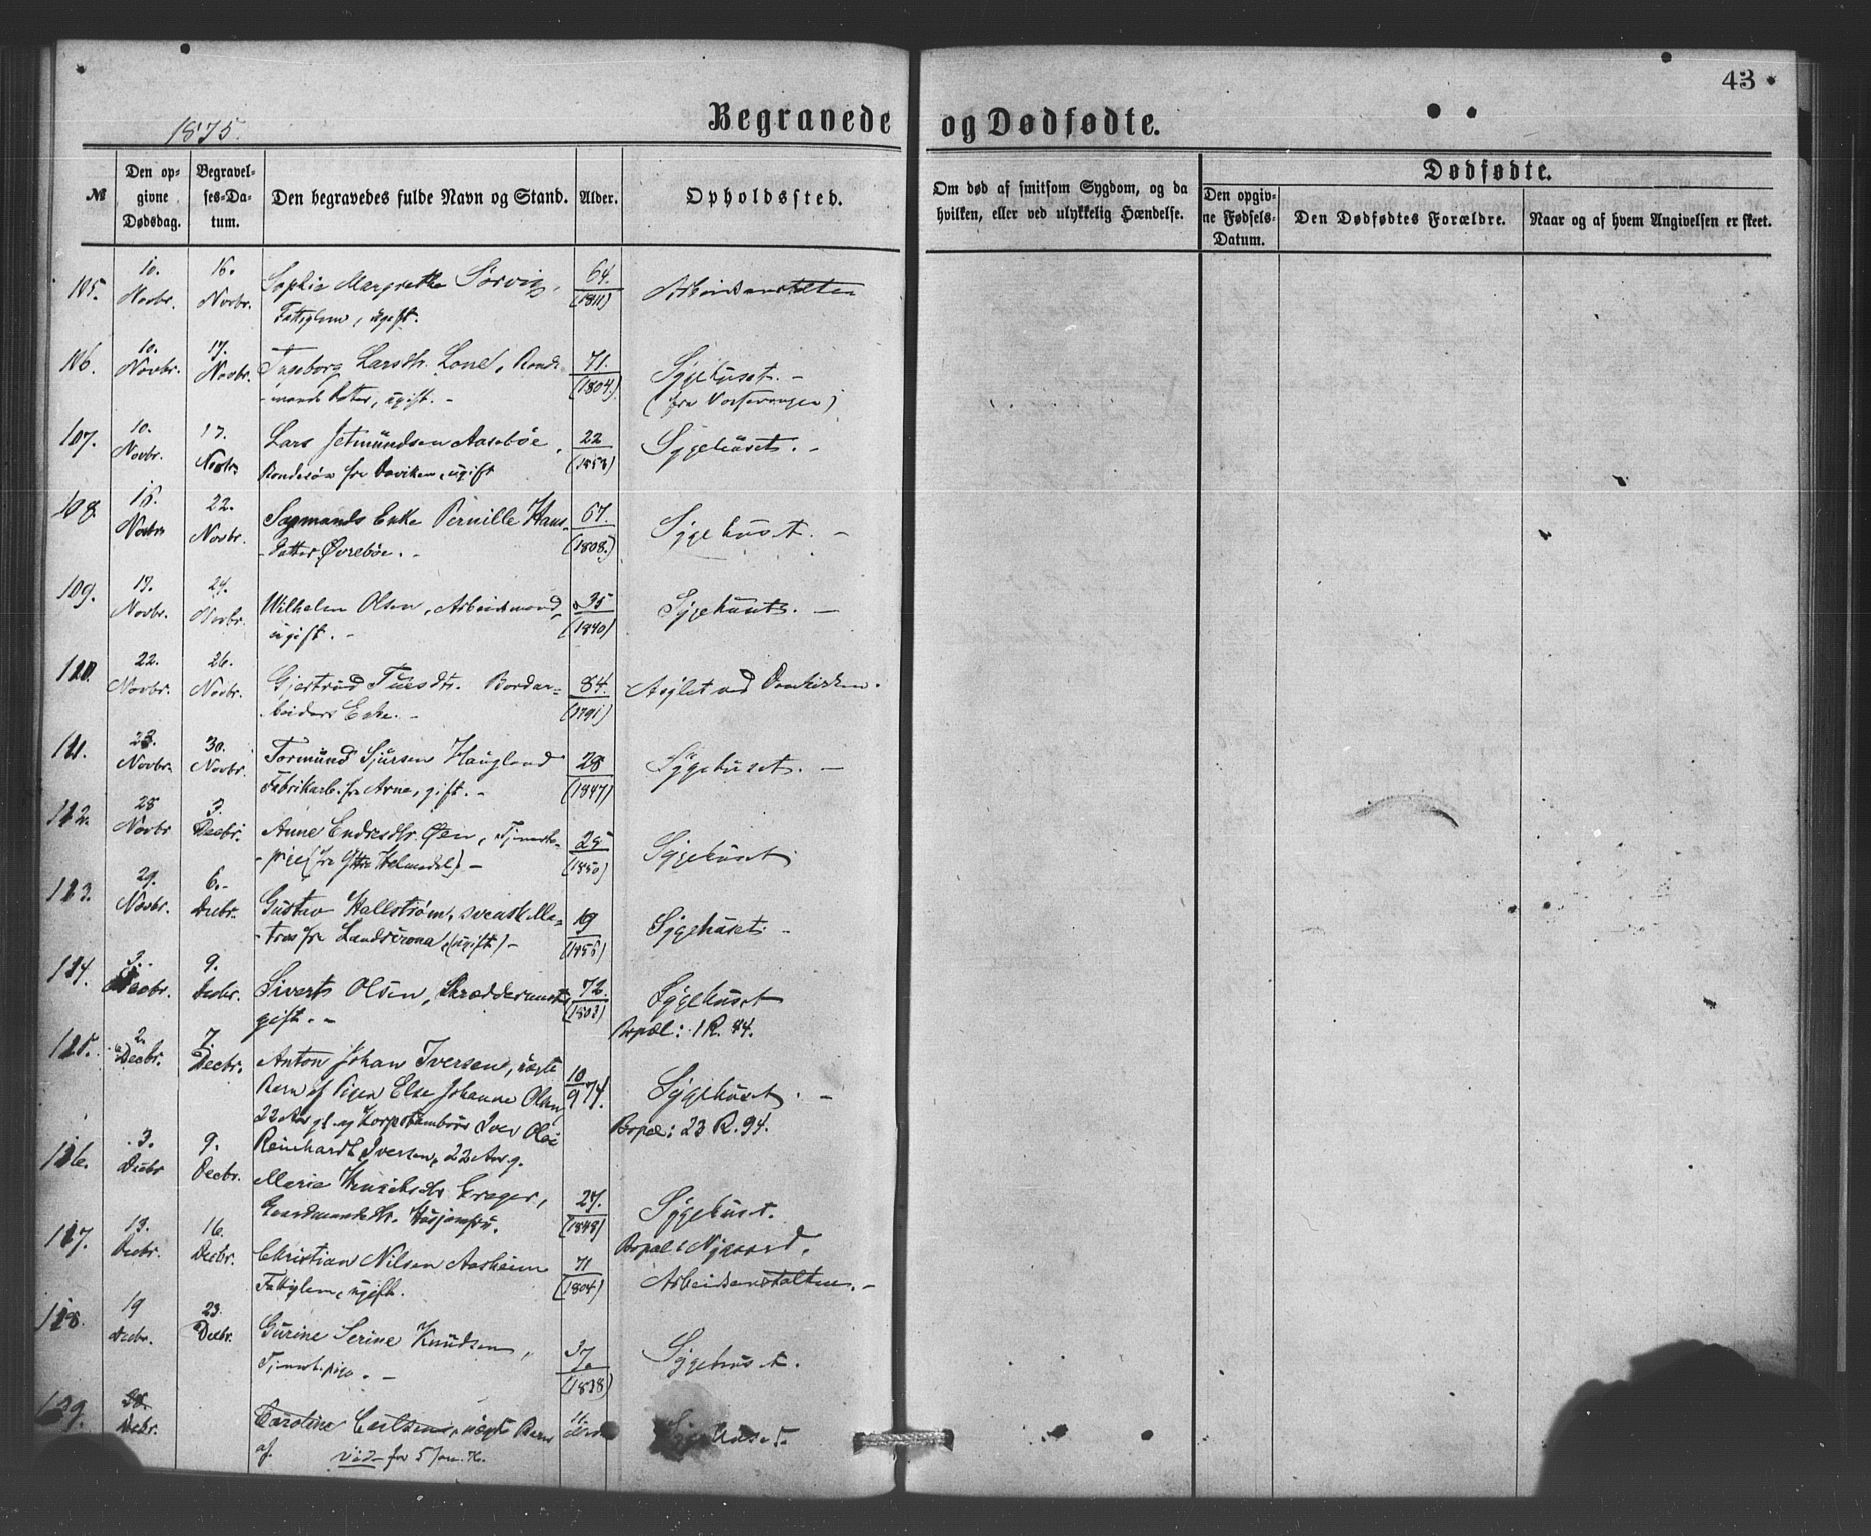 43
1875.
Begravede og Dødfødte.
№
Den opgivne Dødsdag.
Begravelses-Datum.
Den begravedes fulde Navn og Stand.
Alder.
Opholdssted.
Om død af smitsom Sygdom, og da hvilken, eller ved ulykkelig Hændelse.
Dødfødte.
Den opgivne Fødsels-Datum.
Den Dødfødtes Forældre.
Naar og af hvem Angivelsen er skeet.
105. 10. Novbr. 16. Novbr. Sophie Margrethe Sørvig, 64. (1811) Arbeidsanstalten
Fattiglem, ugift.
106. 10. Novbr. 17. Novbr. Ingeborg Larsdtr. Lone, Bonde- 71. (1804) Sygehuset. -
mands Datter, ugift. -
107. 10. Novbr. 17. Novbr. Lars Jetmundsen Aasebøe, 22 (1853) Sygehuset. -
Bondesøn fra Daviken, ugift
108. 16. Novbr. 22. Novbr. Sagmands Enke Pernille Hans- 67. (1808.) Sygehuset. -
datter Øvrebøe. -
109. 17. Novbr. 24. Novbr. Wilhelm Olsen, Arbeidsmand, 35 (1840) Sygehuset. -
ugift. -
110. 22. Novbr. 26. Novbr. Gjertrud Tuesdtr. Bordar- 84. (1791) Asylet ved Domkirken.
beiders Enke. -
111. 23. Novbr. 30. Novbr. Tormund Sjursen Haugland 28 (1847) Sygehuset. -
Fabrikarb. fra Arne, gift. -
112. 28 Novbr 3. Decbr. Anne Endresdtr. Øen, Tjeneste- 25 (1850) Sygehuset
pige (fra Yttre Holmedal) -
113. 29. Novbr. 6. Decbr. Gustav Hallstrøm, svensk Ma- 19 (1856) Sygehuset. -
tros fra Landscrona, (ugift) -
114. Decbr. 9. Decbr. Siverts Olsen, Skræddermester 72. (1803) Sygehuset
gift. - Bopæl: 1 R. 44.
115. 2. Decbr. 7. Decbr. Anton Johan Iversen, uægte 10/9 74. Sygehuset. -
Barn af Pigen Else Johanne Olsen
22 Aar gl. og Korpstambour Iver Olai Bopæl: 23 R. 94.
Reinhardt Iversen, 22 Aar g.
116. 3. Decbr 9. Decbr. Marie Henriksdtr Kreger, 27. (1848) Sygehuset.
Gaardmandsdtr. Bopæl: Nygaard.
117. 13. Decbr. 16. Decbr. Christian Nilsen Aasheim 71 (1804) Arbeidsanstalten. -
Fattiglem, ugift.
118. 19 Decbr. 23. Decbr. Gurine Serine Knudsen, 37. (1838) Sygehuset.
Tjenestepige. -
119. Decbr. Carolina Carlsen, uægte Barn Sygehuset.
af. vide for 5 Jan. 76.